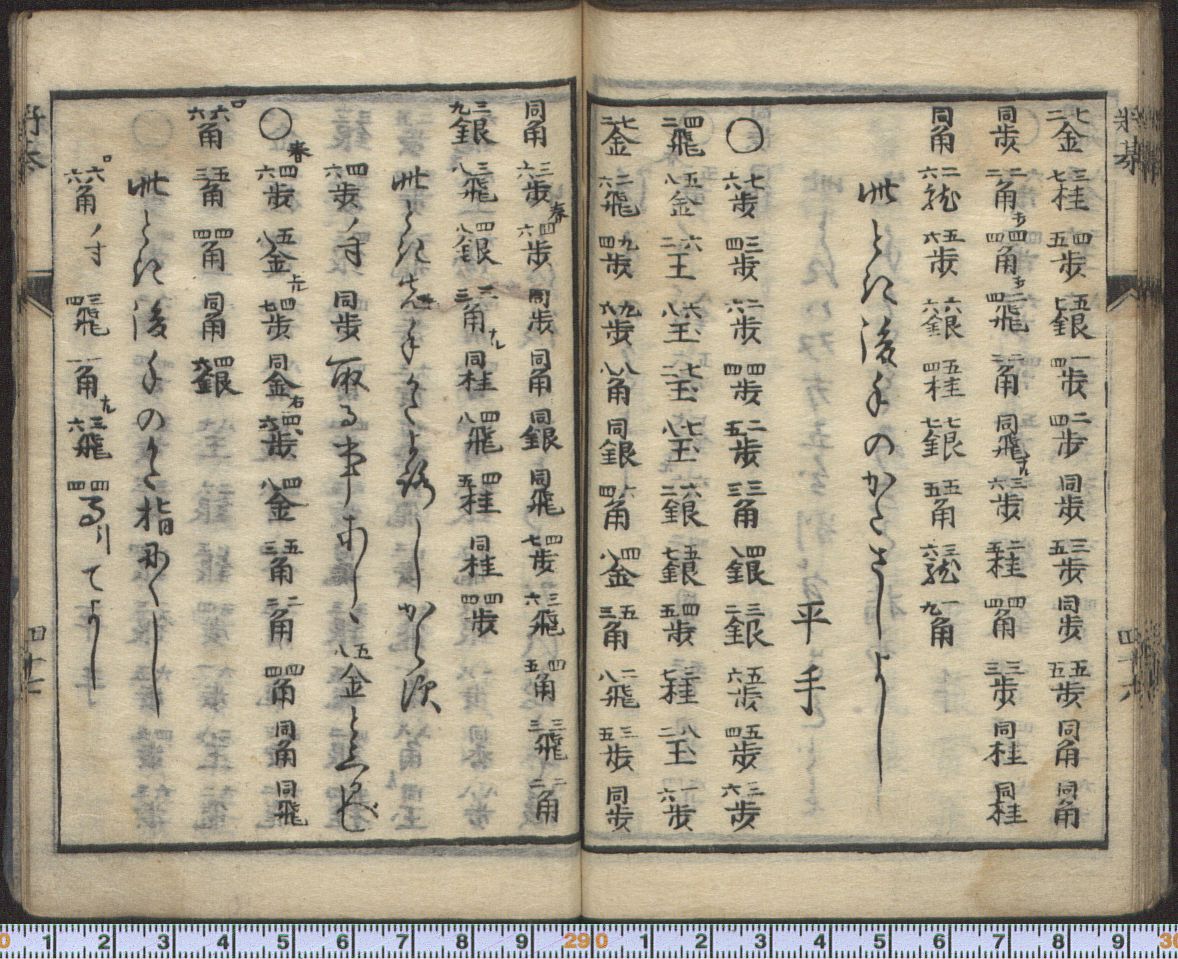 七二金 三七桂 四五歩 五七銀 一四歩 二四歩 同歩 三五歩 同歩 五五歩 同角 同角
同歩 二二角 四四角 二四飛 二二角 同飛 三六歩 二五桂 四四角 三三歩 同桂 同桂
同角 二六龍 五六歩 六六銀 五四桂 七七銀 五五角 三六龍 一九角
此ときは後手のかたさしよし
平手
〇 七六歩 三四歩 二六歩 四四歩 二五歩 三三角 四八銀 三二銀 五六歩 五四歩 三六歩
四二飛 五八金 六二王 六八玉 七二玉 七八玉 六二銀 五七銀 四五歩 三七桂 八二玉 一六歩
七二金 二六飛 九四歩 九六歩 八八角 同銀 六四角 四八金 五三角 二八飛 三五歩 同歩
同角 三六歩 四六歩 同歩 同角 同銀 同飛 四七歩 三六飛 四五角 三三飛 一二角
三九銀 三八飛 四八銀 二三角ナル 同桂 四八飛 四五桂 同桂 四四歩
此とき先手
四六歩ノ時 同歩取る事あしく 五八金と上るべし
〇 四六歩 五八金 四七歩 同金 四六歩 四八金 五三角 一二角 四四角 同角 同飛
六六角 五三角 四四角 同角 四六銀
此とき後手のくミ指にくし
六六角ノ時 三四飛 一一角 三六飛 四四馬引てよし
四十六
四十七